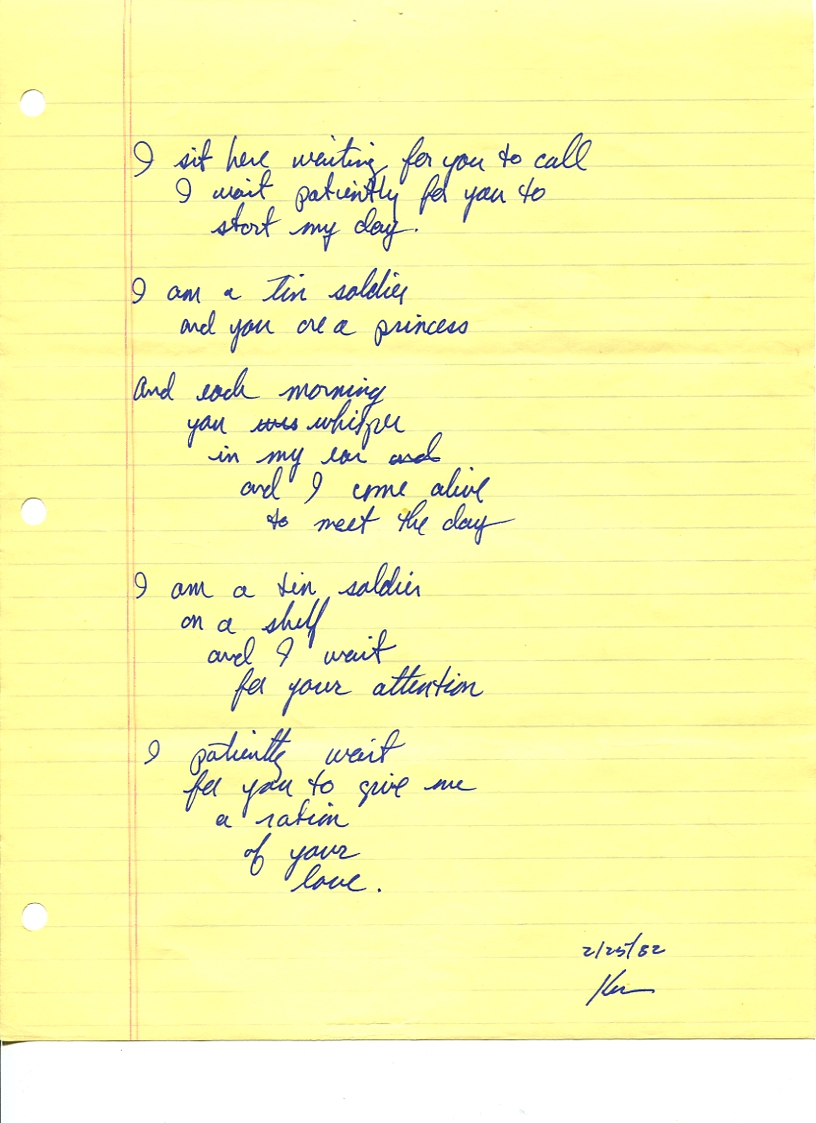 I sit here waiting for you to call
I wait patiently for you to
start my day.
I am a tin soldier
and you are a princess
And each morning
you whisper
in my ear and
and I come alive
to meet the day
I am a tin soldier
on a shelf
and I wait
for your attention
I patiently wait
for you to give me
a ration
of your
love.
2/25/82